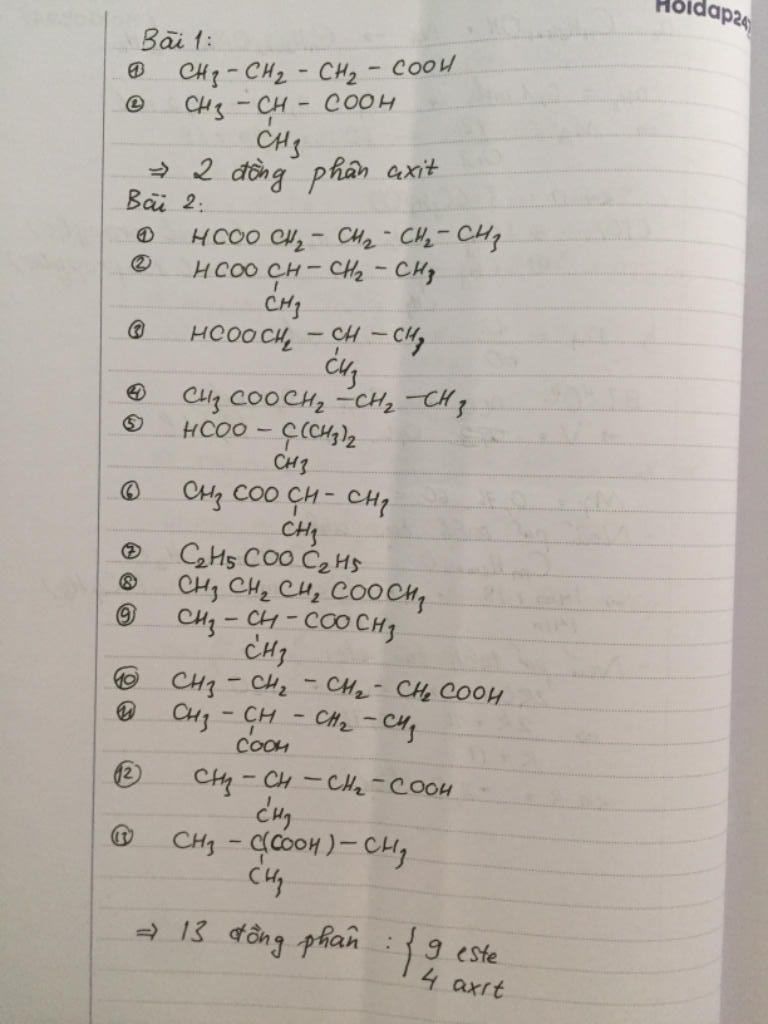 Hoidap247
Bài 1:
① CH3 – CH2 – CH2 – COOH
② CH3 – CH – COOH
CH3
⇒ 2 đồng phân axit
Bài 2:
① HCOO CH2 – CH2 - CH2 – CH3
② HCOO CH – CH2 – CH3
CH3
③ HCOOCH2 – CH – CH3
CH3
④ CH3 COOCH2 – CH2 – CH3
⑤ HCOO – C(CH3)2
CH3
⑥ CH3 COO CH – CH3
CH3
⑦ C2H5 COO C2H5
⑧ CH3 CH2 CH2 COOCH3
⑨ CH3 – CH – COO CH3
CH3
⑩ CH3 – CH2 – CH2 - CH2 COOH
⑪ CH3 – CH – CH2 – CH3
COOH
⑫ CH3 – CH – CH2 – COOH
CH3
⑬ CH3 – C(COOH) – CH3
CH3
⇒ 13 đồng phân : { 9 este
4 axit